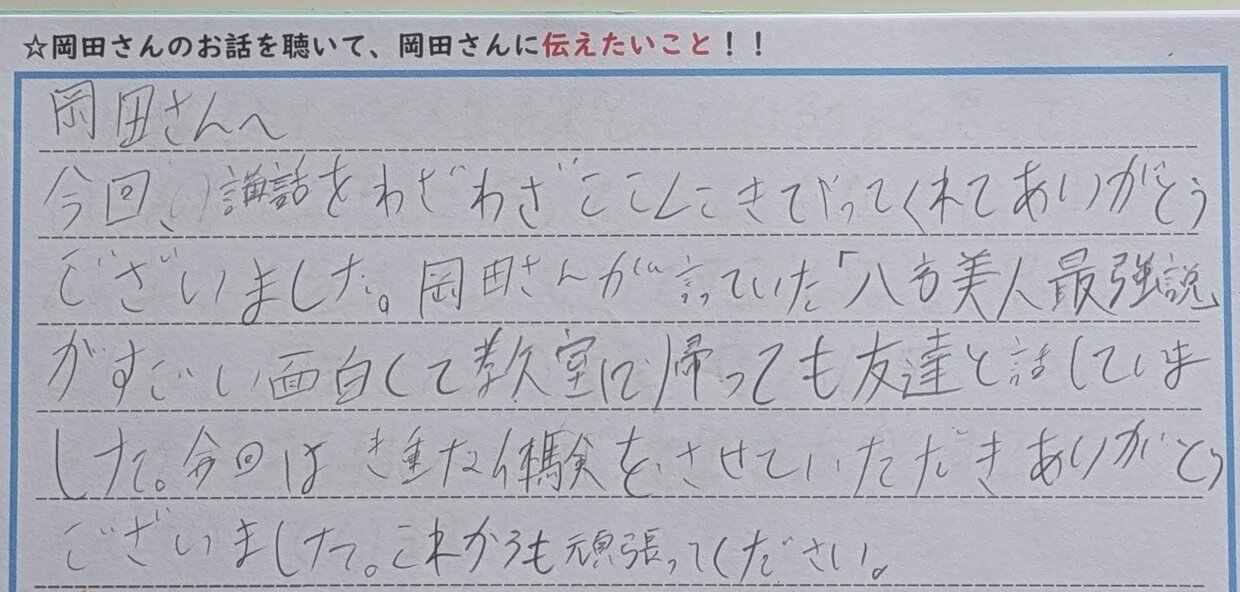 ☆岡田さんのお話を聴いて、岡田さんに伝えたいこと！！
岡田さんへ
今回、講話をわざわざここにきてやってくれてありがとう
ございました。岡田さんが言っていた「八方美人最強説
がすごい面白くて教室に帰っても友達と話していま
した。今回はき重な体験をさせていただきありがとう
ございました。これからも頑張ってください。